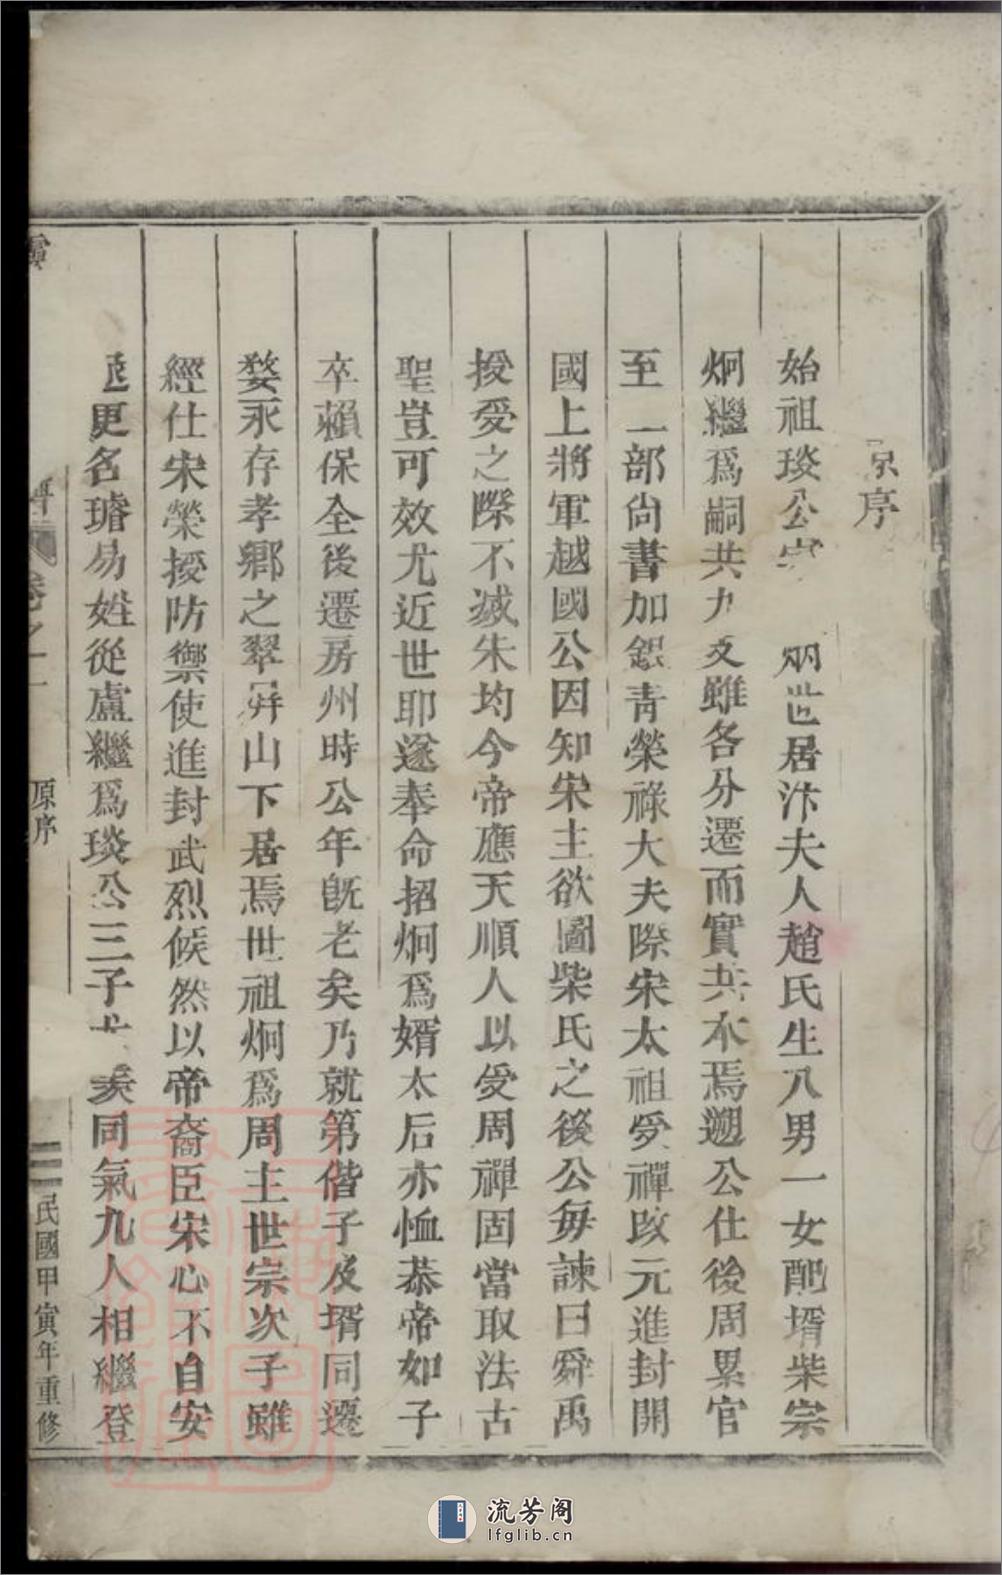 原序
始祖琰公字炳世居汴夫人趙氏生八男一女配壻柴宗
炯繼爲嗣共九支雖各分遷而實共本焉遡公仕後周累官
至工部尙書加銀青榮祿大夫際宋太祖受禪改元進封開
國上將軍越國公因知宋主欲圖柴氏之後公每諫曰舜禹
授受之際不滅朱均今帝應天順人以受周禪固當取法古
聖豈可效尤近世耶遂奉命招炯爲婿太后亦恤恭帝如子
卒賴保全後遷房州時公年旣老矣乃就第偕子及壻同遷
婺永存孝鄉之翠屛山下居焉世祖炯爲周主世宗次子雖
經仕宋榮擾防禦使進封武烈候然以帝裔臣宋心不自安
更名璿易姓從盧繼爲琰公三子同氣九人相繼登
卷之一
原序
民國甲寅年重修
流芳阁
lfglib.cn